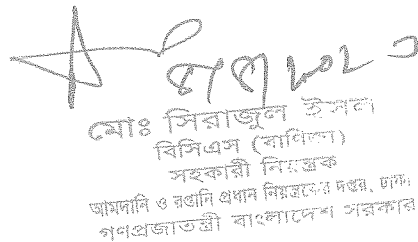 ৪/৪/২০২
মোঃ সিরাজুল ইসলাম
বিসিএস (বাণিজ্য)
সহকারী নিয়ন্ত্রক
আমদানি ও রপ্তানি প্রধান নিয়ন্ত্রকের দপ্তর, ঢাকা।
গণপ্রজাতন্ত্রী বাংলাদেশ সরকার